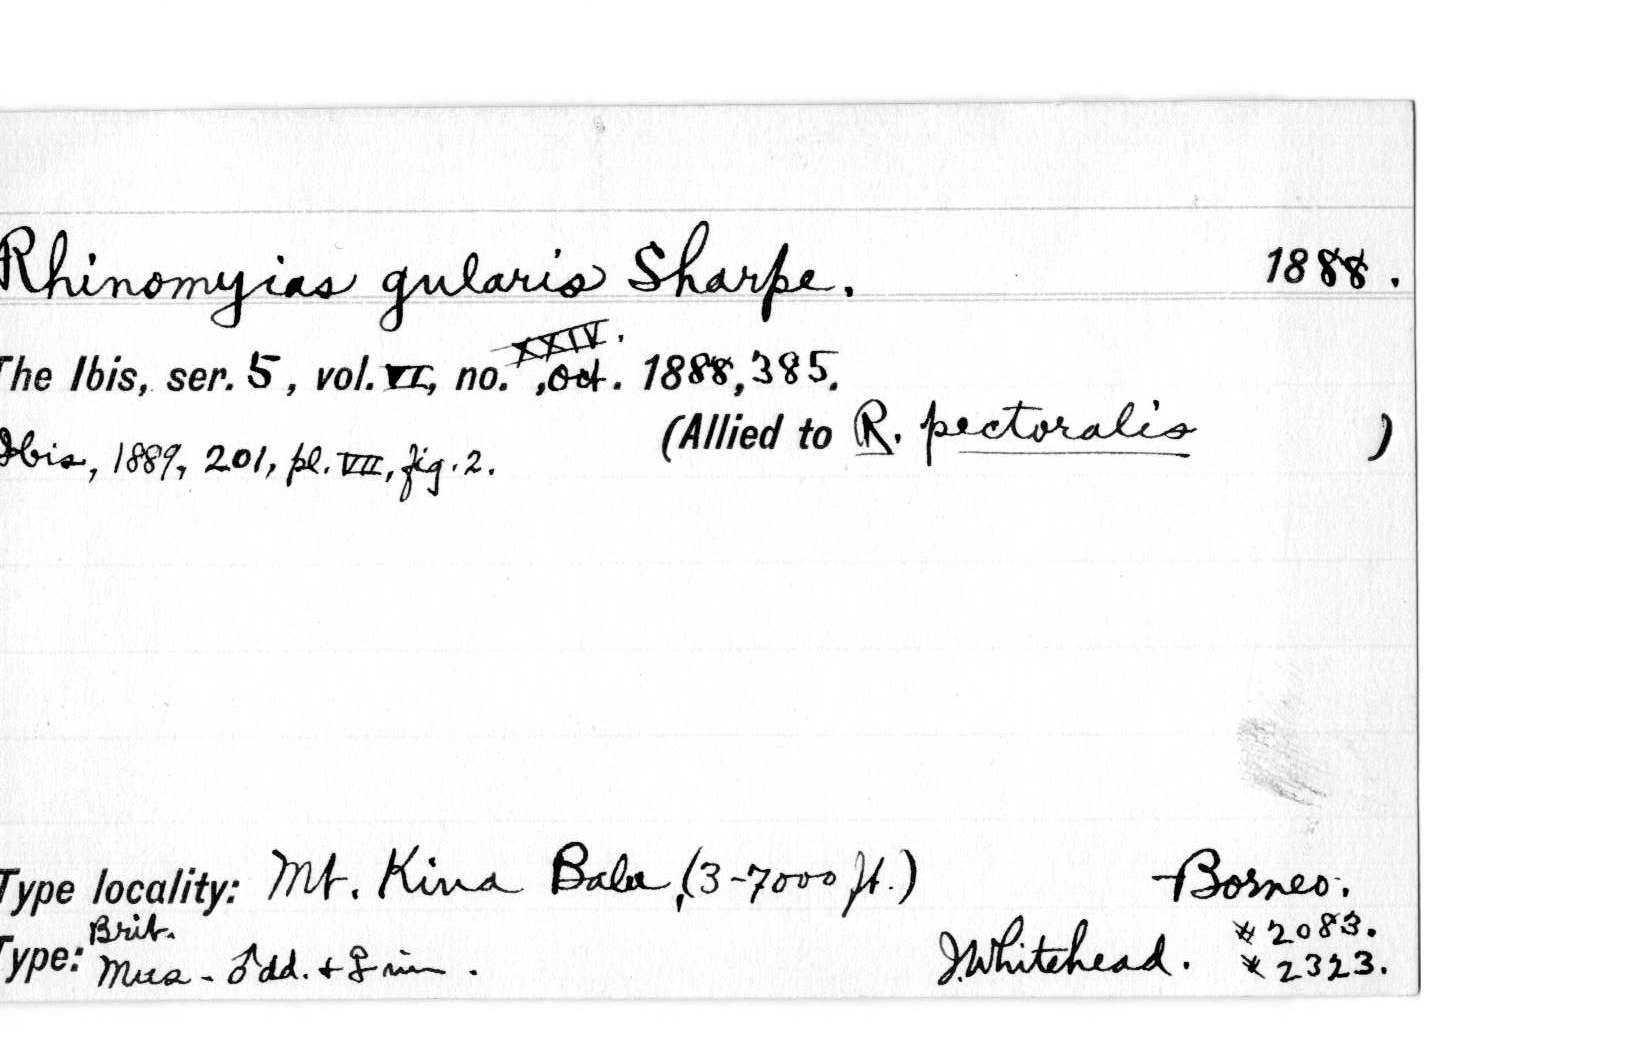 Rhinomyias gularis Sharpe. 1888.
The Ibis, ser. 5, vol. VI, no. XXIV., Oct. 1888, 385.
(Allied to R. pectoralis )
Ibis, 1889, 201, pl. VII, fig. 2.
Type locality: Mt. Kina Balu, (3-7000 ft.) Borneo.
Type: Brit. Mus - ♂ ad. + ♀ . J. Whitehead. # 2083.
# 2323.